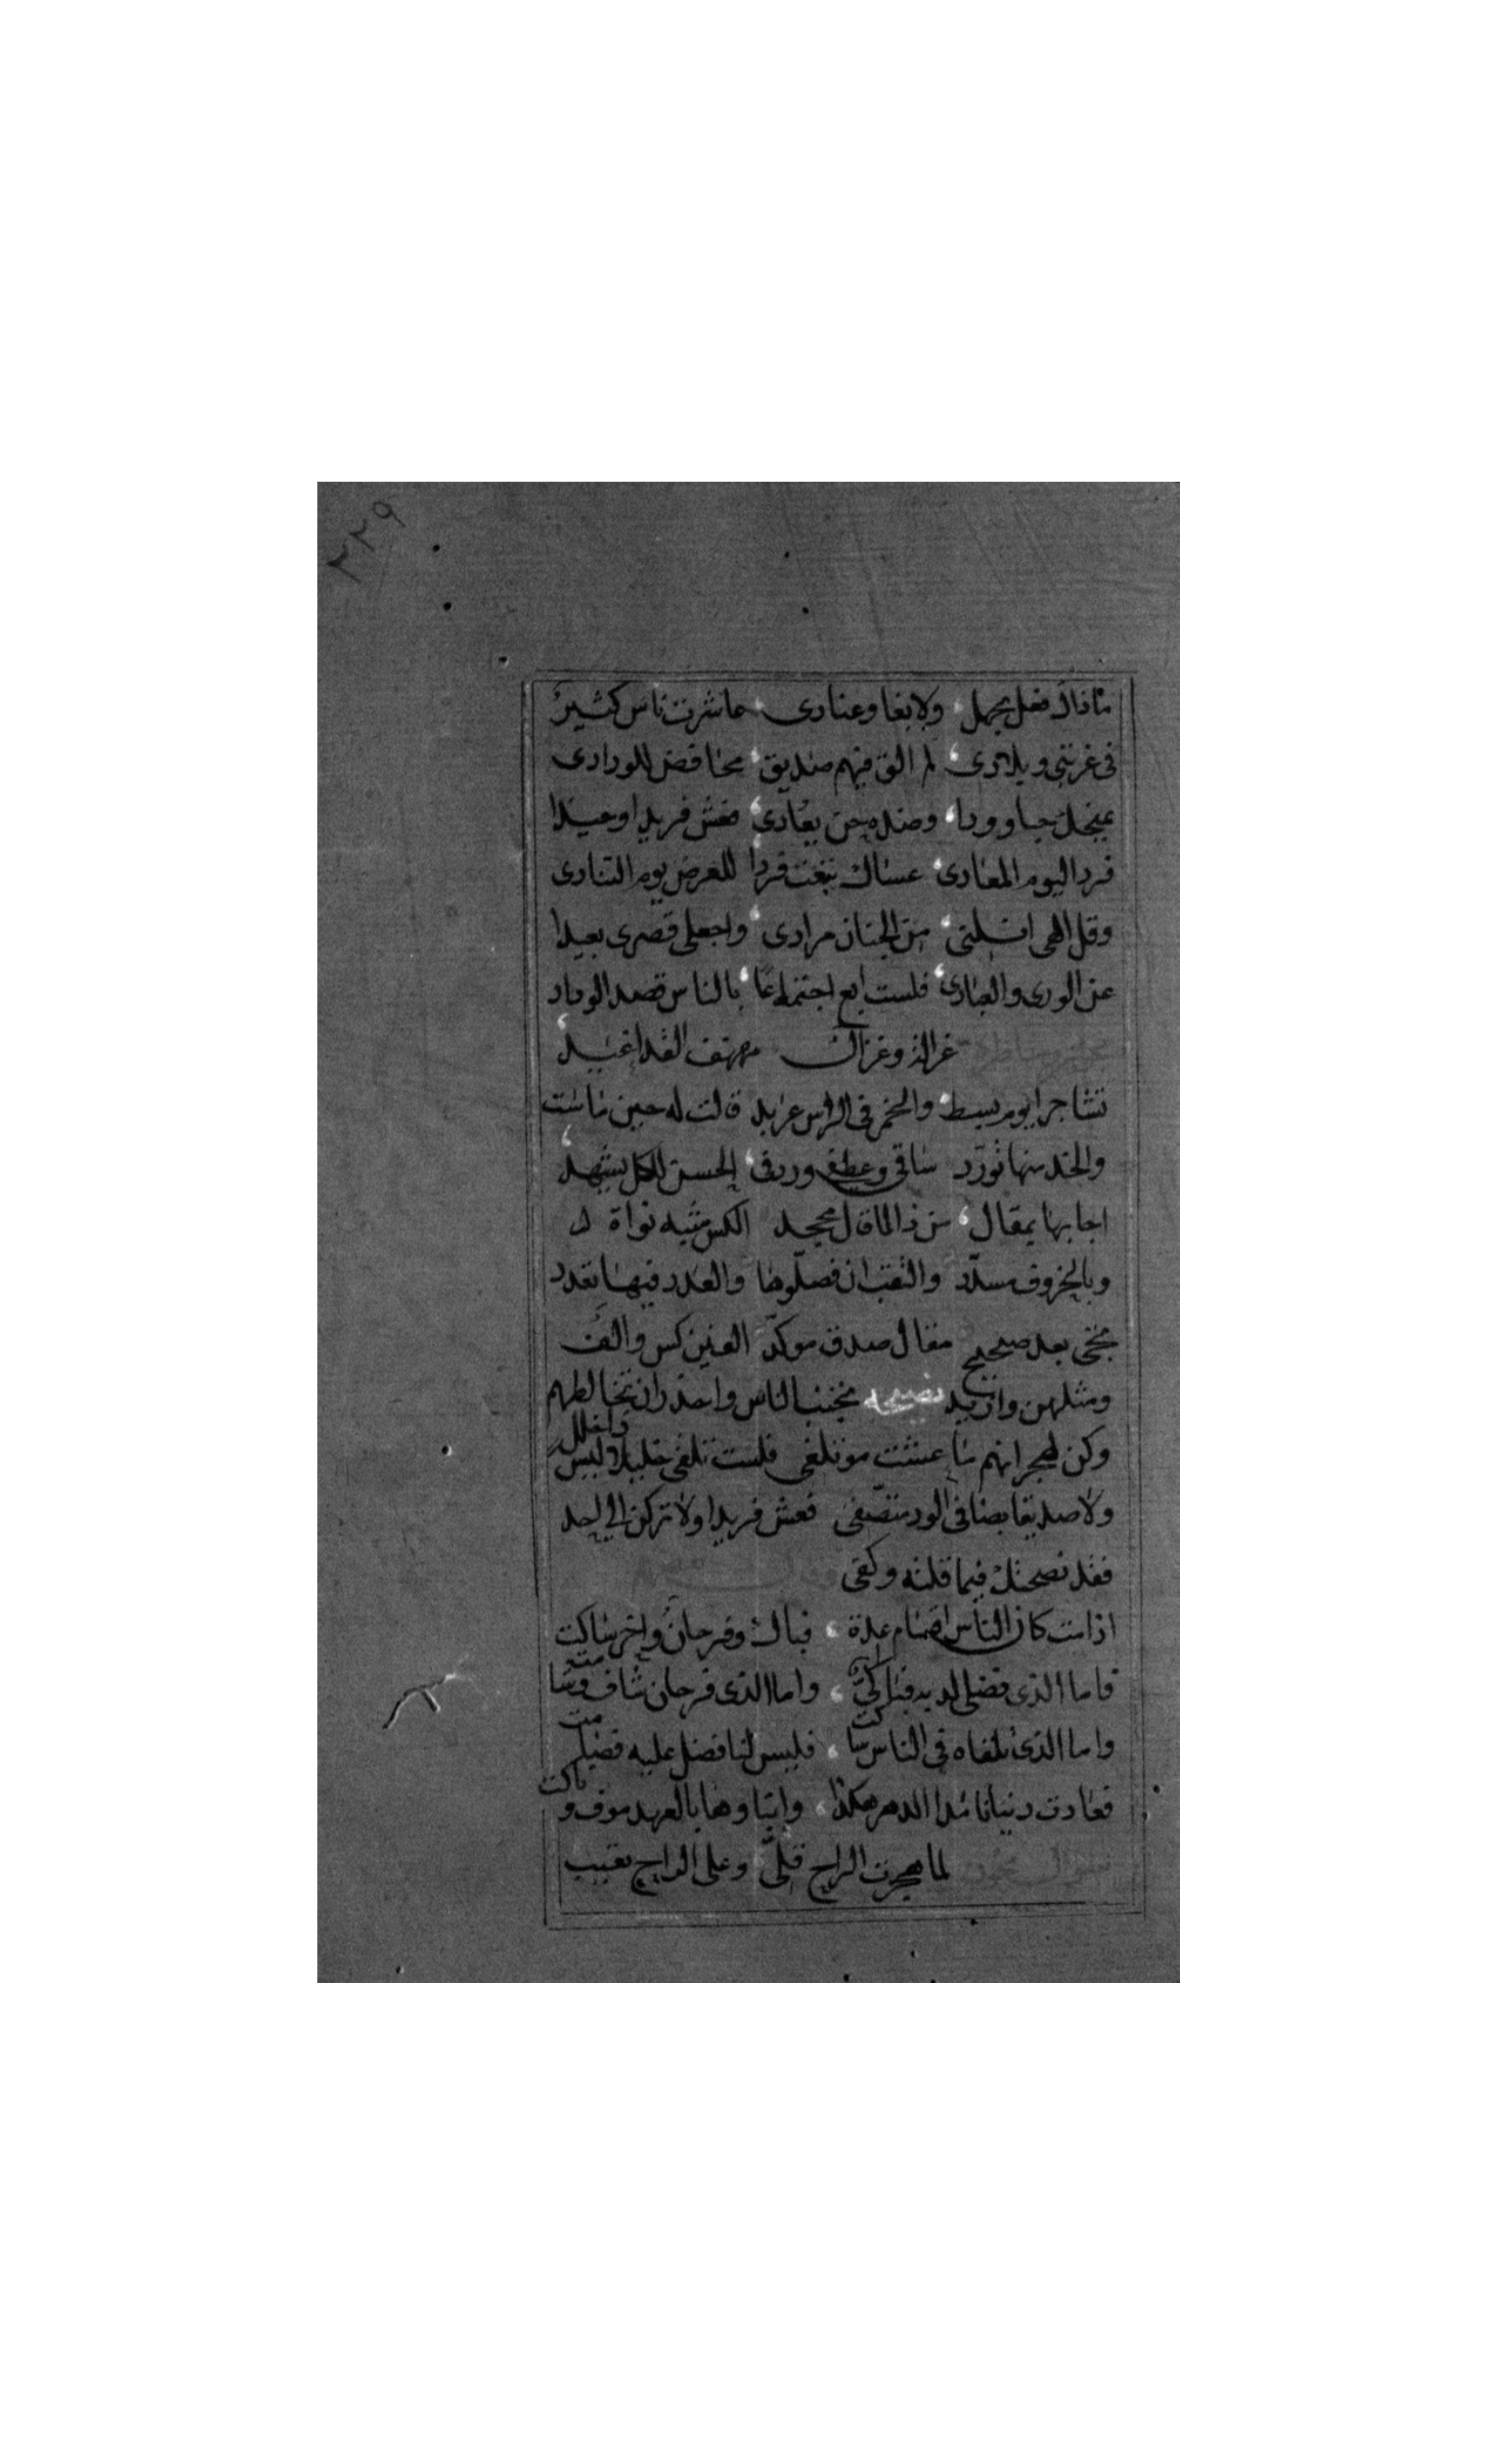 ٢٢٩
ماذاك فعل جميل ولا بغا وعنادى عاشرت ناس كثير
فى غربتى وبلادى لم الق فيهم صديق محافض للودادى
وضده من يعادى فعش فريدا وحيدا
فردا ليوم المعادى عساك تبعث فردا للعرض يوم التنادى
وقل الهى انلنى من الجنان مرادى واجعل قصرى بعيدا
عن الورى والعبادى فلست ابغ اجتماعا بالناس قصد الوداد
غزالة وغزال مهفهف القد اغيد
تشاجرا يوم بسيط والخمر فى الراس عربد قالت له حين ماست
والخد منها تورد ساقى وعطفى وردفى الحسن للكل يشهد
اجابها بمقال من ذالماقال يجحد الكس شبه نواة
وبالخروف مسدد والثقب ان فصلوها والعدد فيها تعدد
بعد صحيح مقال صدق موكد الفين كس والف
ومثلهن وازيد نصيحه تجنب الناس واحذر ان تخالطهم
وكن لهجرانهم ما عشت موتلفى فلست تلفى خليلا وليس
ولا صديقا بصافى الود متصفى فعش فريدا ولا تركن الى احد
فقد نصحتك فيما قلته وكفى
اذا مت كان الناس اقسام عدة فباك وفرحان واخر ساكت
فاما الذى فضلى لديه فباكى واما الذى فرحان شاف وشامت
واما الذى تلقاه فى الناس ساكت فليس لنا فضل عليه
فعادت دنيانا مدا الدهر هكذا وابناوها بالعهد موف و
لما هجرت الراح قلى وعلى الراح تعيب